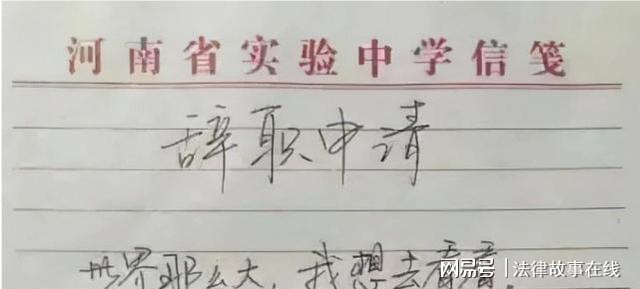 河南省实验中学信笺
辞职申请
世界那么大，我想去看看。
网易号 | 法律故事在线